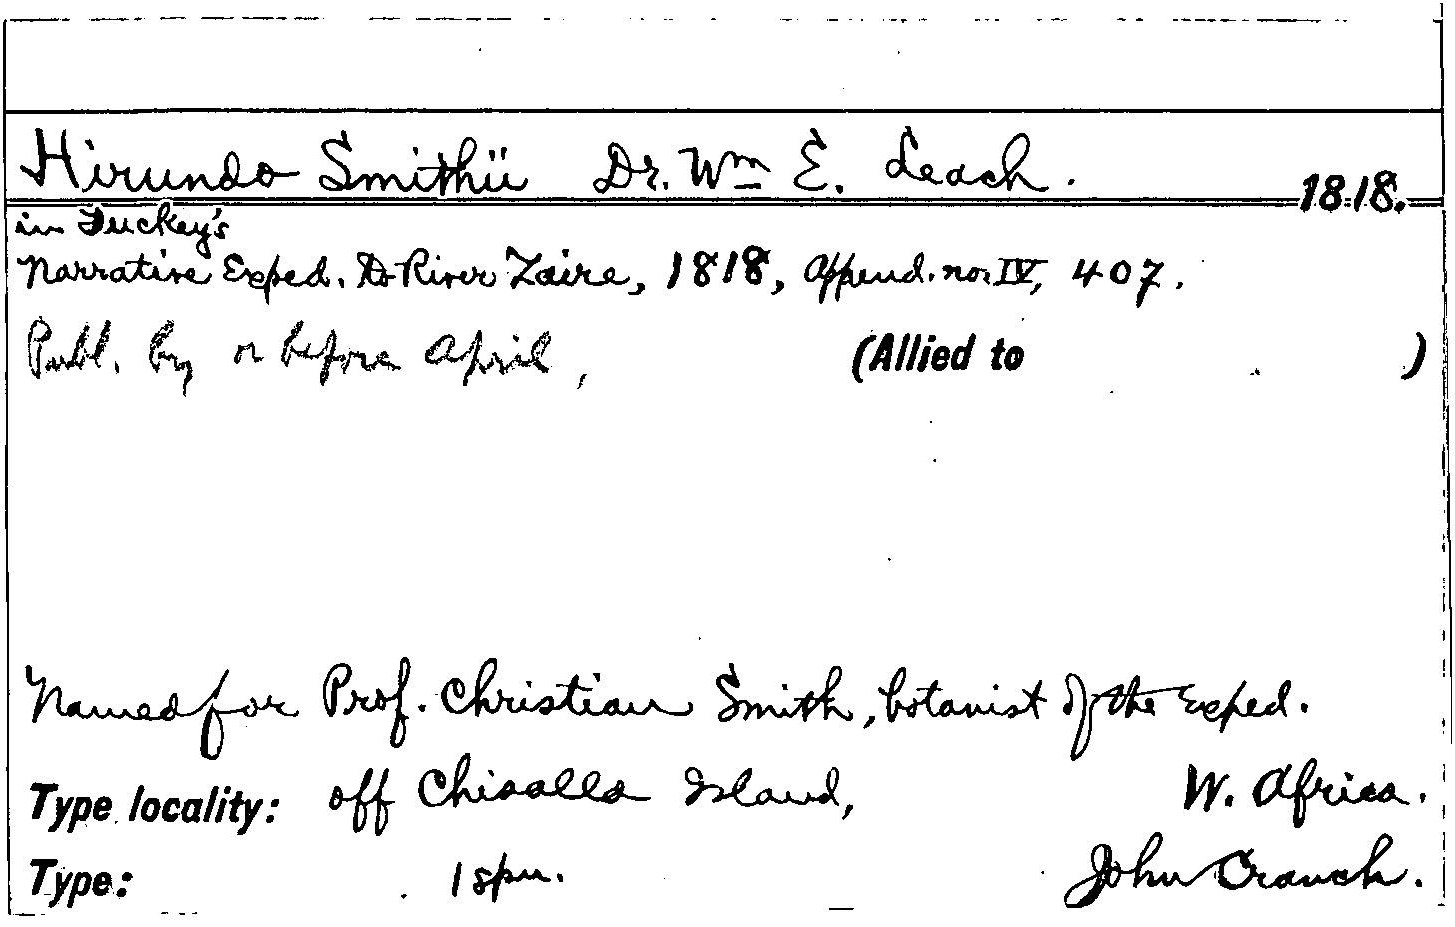 Hirundo Smithii Dr. Wm E. Leach. 1818.
in Tuckey's
Narrative Exped. to River Zaire, 1818, Append. no. IV, 407.
Publ. by or before April, (Allied to )
Named for Prof. Christian Smith, botanist of the Exped.
Type locality: off Chisalla Island, W. Africa.
Type: 1 spn. John Cranch.